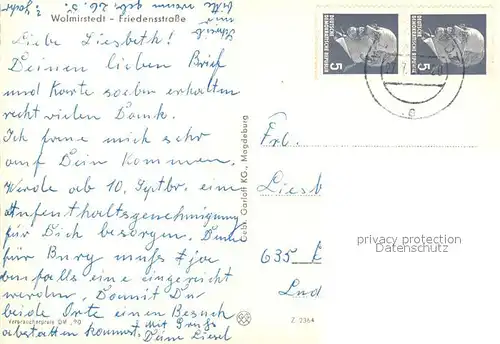 Wolmirstedt - Friedensstraße
Liebe Liesbeth!
Deinen lieben Brief
und Karte soeben erhalten
recht vielen Dank.
Ich freue mich sehr
auf Dein Kommen.
Werde ab 10. Sptbr. eine
Aufenthaltsgenehmigung
für Dich besorgen. Denn
für Burg muss
eine eingereicht
werden. Damit Du
beide Orte einen Besuch
abstatten kannst. Mit Gruß
Deine Liesel
Verbraucherpreis DM -,20
Gebr. Garloff KG., Magdeburg
DEUTSCHE
DEMOKRATISCHE REPUBLIK
5
DEUTSCHE
DEMOKRATISCHE REPUBLIK
5
Frl.
Liesb
635
Lud
privacy protection
Z 2364